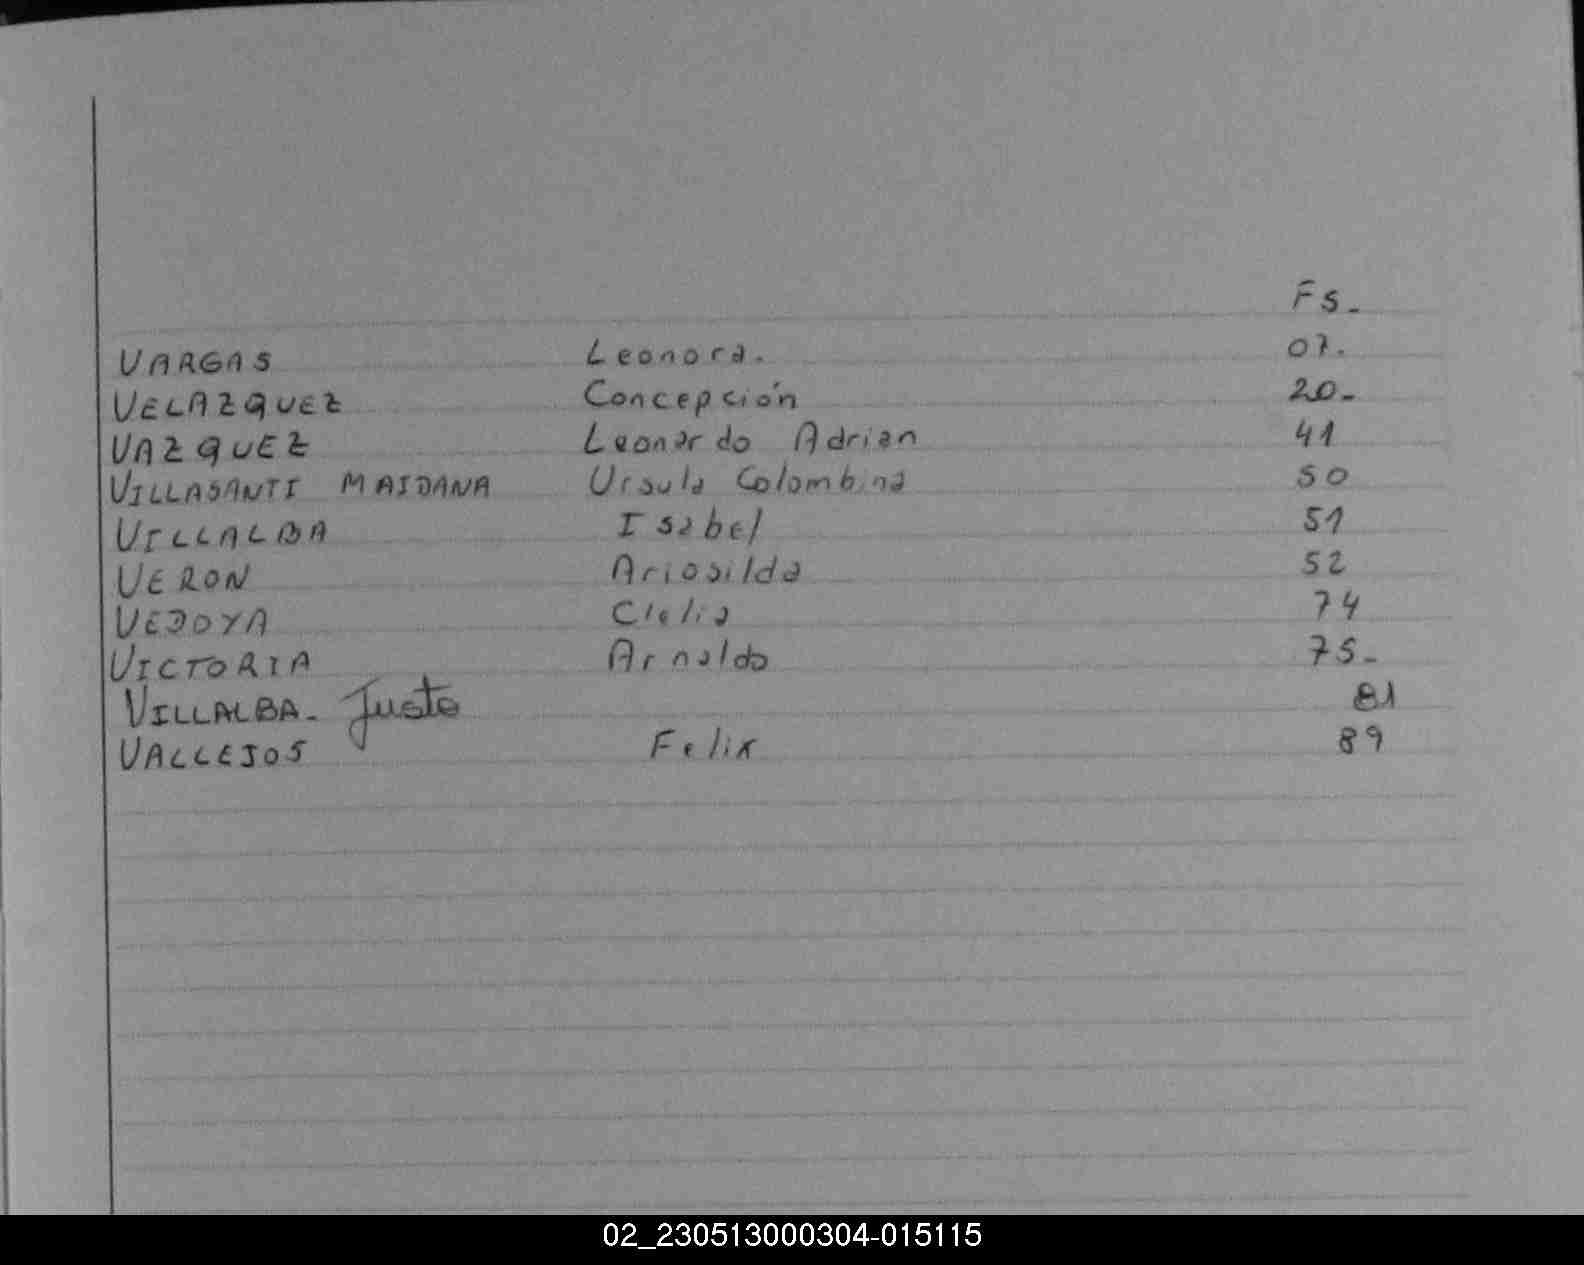 Fs.
VARGAS Leonora. 07.
VELAZQUEZ Concepción 20-
VAZQUEZ Leonardo Adrian 41
VILLASANTI MAIDANA Ursula Colombina 50
VILLALBA Isabel 51
VERON Ariosilda 52
VEDOYA Clelia 74
VICTORIA Arnaldo 75-
VILLALBA- Justo 81
VALLEJOS Felix 89
02_230513000304-015115